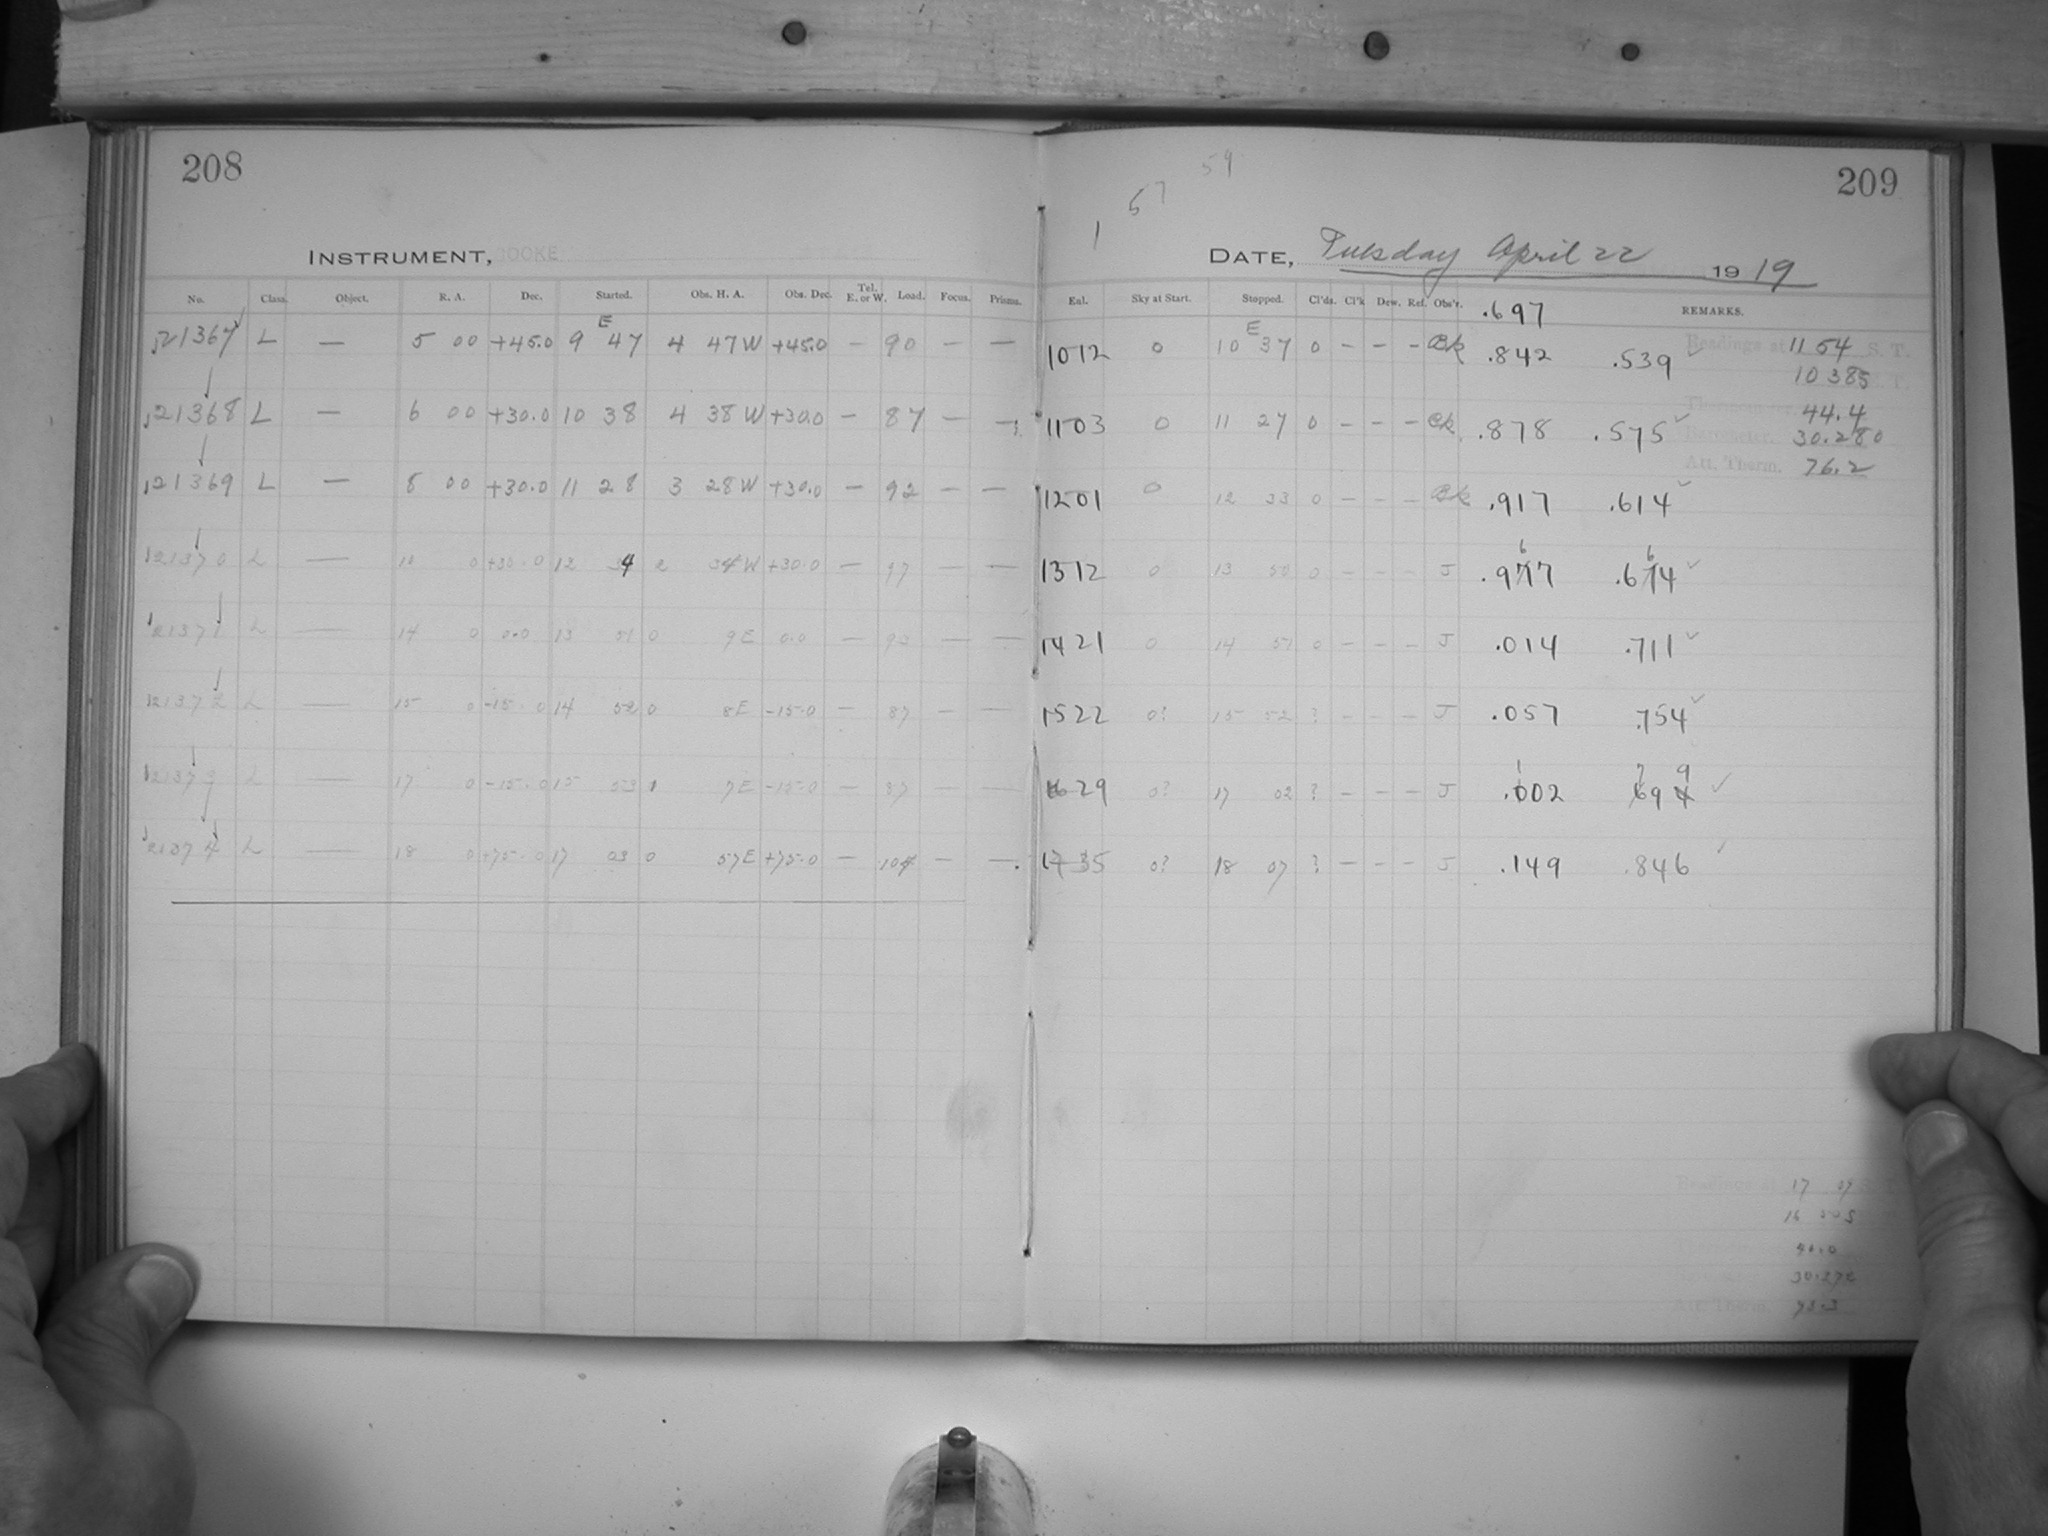 208
INSTRUMENT, COOKE
No. Class. Object. R. A. Dec. Started. Obs. H. A. Obs. Dec. Tel. E. or W. Load. Focus. Prisms.
21367 L — 5 00 +45.0 9 E 47 4 47 W +45.0 — 90 — —
21368 L — 6 00 +30.0 10 38 4 38 W +30.0 — 87 — —
21369 L — 8 00 +30.0 11 28 3 28 W +30.0 — 92 — —
21370 L — 10 0 +30.0 12 34 2 34 W +30.0 — 97 — —
21371 L — 14 0 0.0 13 51 0 9 E 0.0 — 92 — —
21372 L — 15 0 -15.0 14 52 0 8 E -15.0 — 87 — —
21373 L — 17 0 -15.0 15 53 1 7 E -15.0 — 87 — —
21374 L — 18 0 +75.0 17 03 0 57 E +75.0 — 104 — —
209
59
57
1
DATE, Tuesday April 22 1919
Eul. Sky at Start. Stopped. Cl'ds. Cl'k Dew. Ref. Obs'r. .697 REMARKS.
1012 0 10 E 37 0 — — — .842 .539 Readings at 11 54 S. T.
10 385
1103 0 11 27 0 — — — .878 .575 44.4
Barometer, 30.280
Att. Therm. 76.2
1201 0 12 33 0 — — — .917 .614
1312 0 13 50 0 — — — J .967 .664
1421 0 14 51 0 — — — J .014 .711
1522 0? 15 52 ? — — — J .057 .754
1629 0? 17 02 ? — — — J .102 .799
1735 0? 18 07 ? — — — J .149 .846
Readings at 17 09
30.272
Att. Therm. 73.3